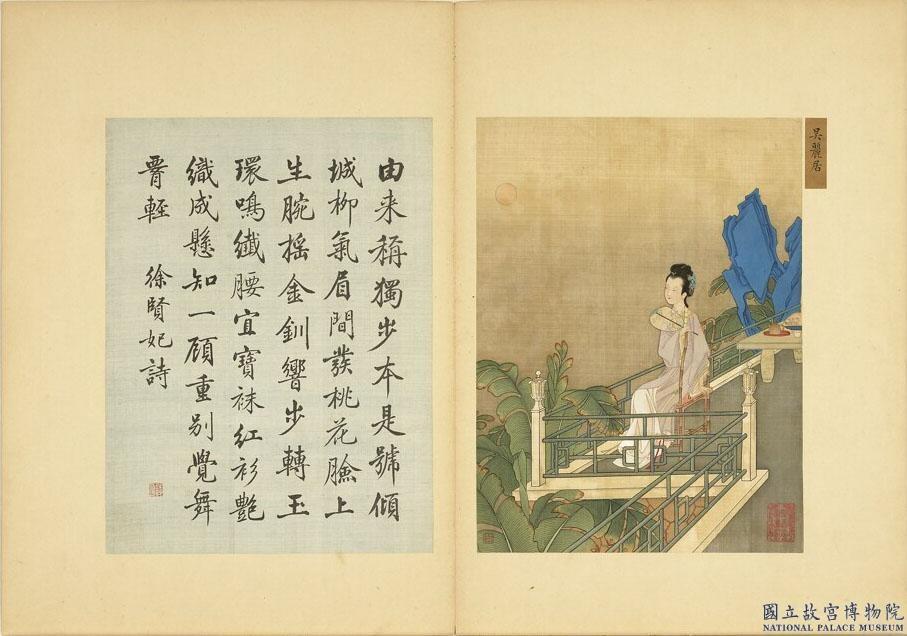 吳麗居
由来稱獨步本是號傾
城柳氣眉間發桃花臉上
生腕搖金釧響步轉玉
環鳴纖腰宜寶袜紅衫艷
織成懸知一顧重別覺舞
腰輕 徐賢妃詩
國立故宮博物院
NATIONAL PALACE MUSEUM